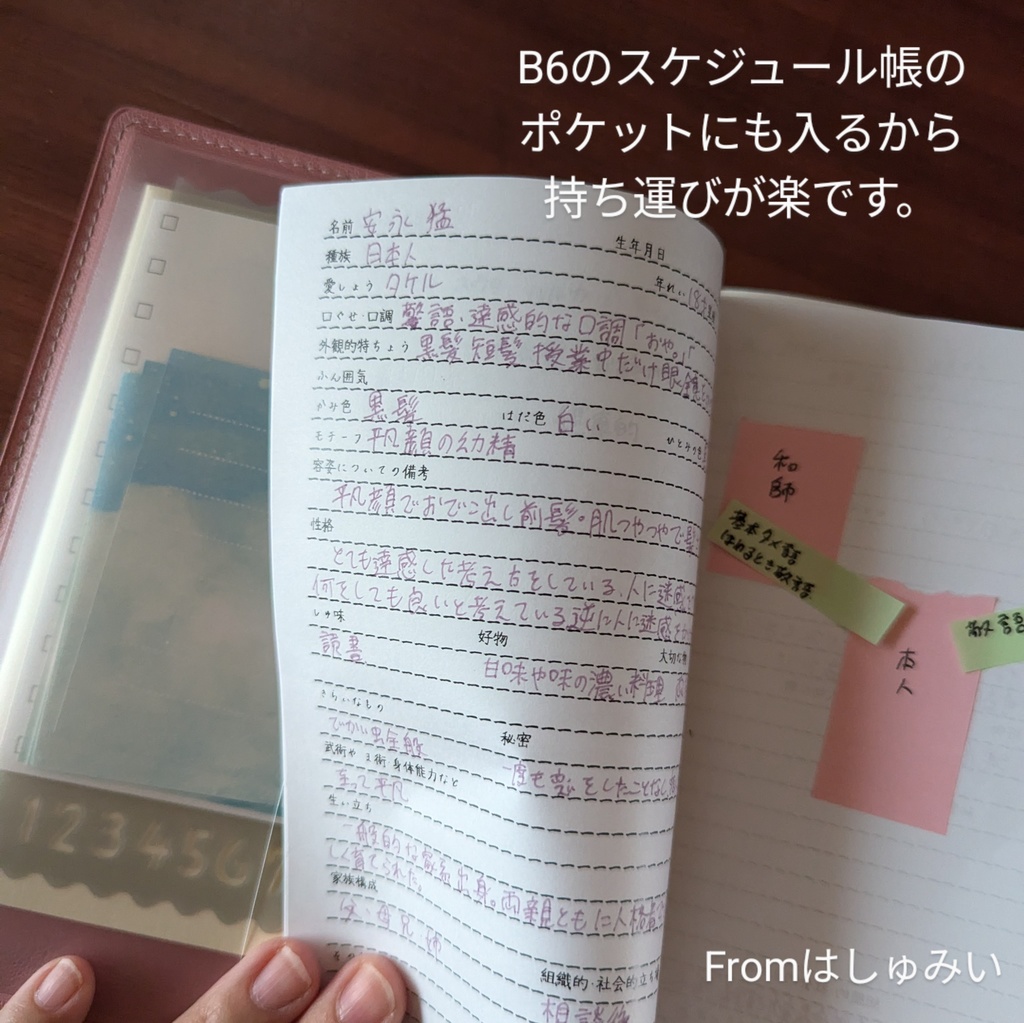 B6のスケジュール帳の
ポケットにも入るから
持ち運びが楽です。
名前 安永 猛
生年月日
種族 日本人
愛しょう タケル
年れい 18才
口ぐせ・口調 達感的な口調「おや。」
外観的特ちょう 黒髪短髪 授業中だけ眼鏡
ふん囲気
かみ色 黒髪
はだ色 白い
ひとみの色
モチーフ 平凡顔の幼精
容姿についての備考
平凡顔でおでこ出し前髪。肌つやつやで
性格
とても達感した考え方をしている。人に迷惑
何をしても良いと考えている逆に人に迷惑を
しゅ味
好物
大切な物
読書
甘味や味の濃い料理
きらいなもの
でかい虫全般
秘密
武術や 身体能力など
一度も恋をしたことなし
至って平凡
生い立ち
一般的な 出身。両親ともに人格者
しく育てられた。
家族構成
父・母・兄・姉
組織的・社会的立ち
相談役
和師
基本タメ語
ほめるとき敬語
本人
敬語
1234567
Fromはしゅみい